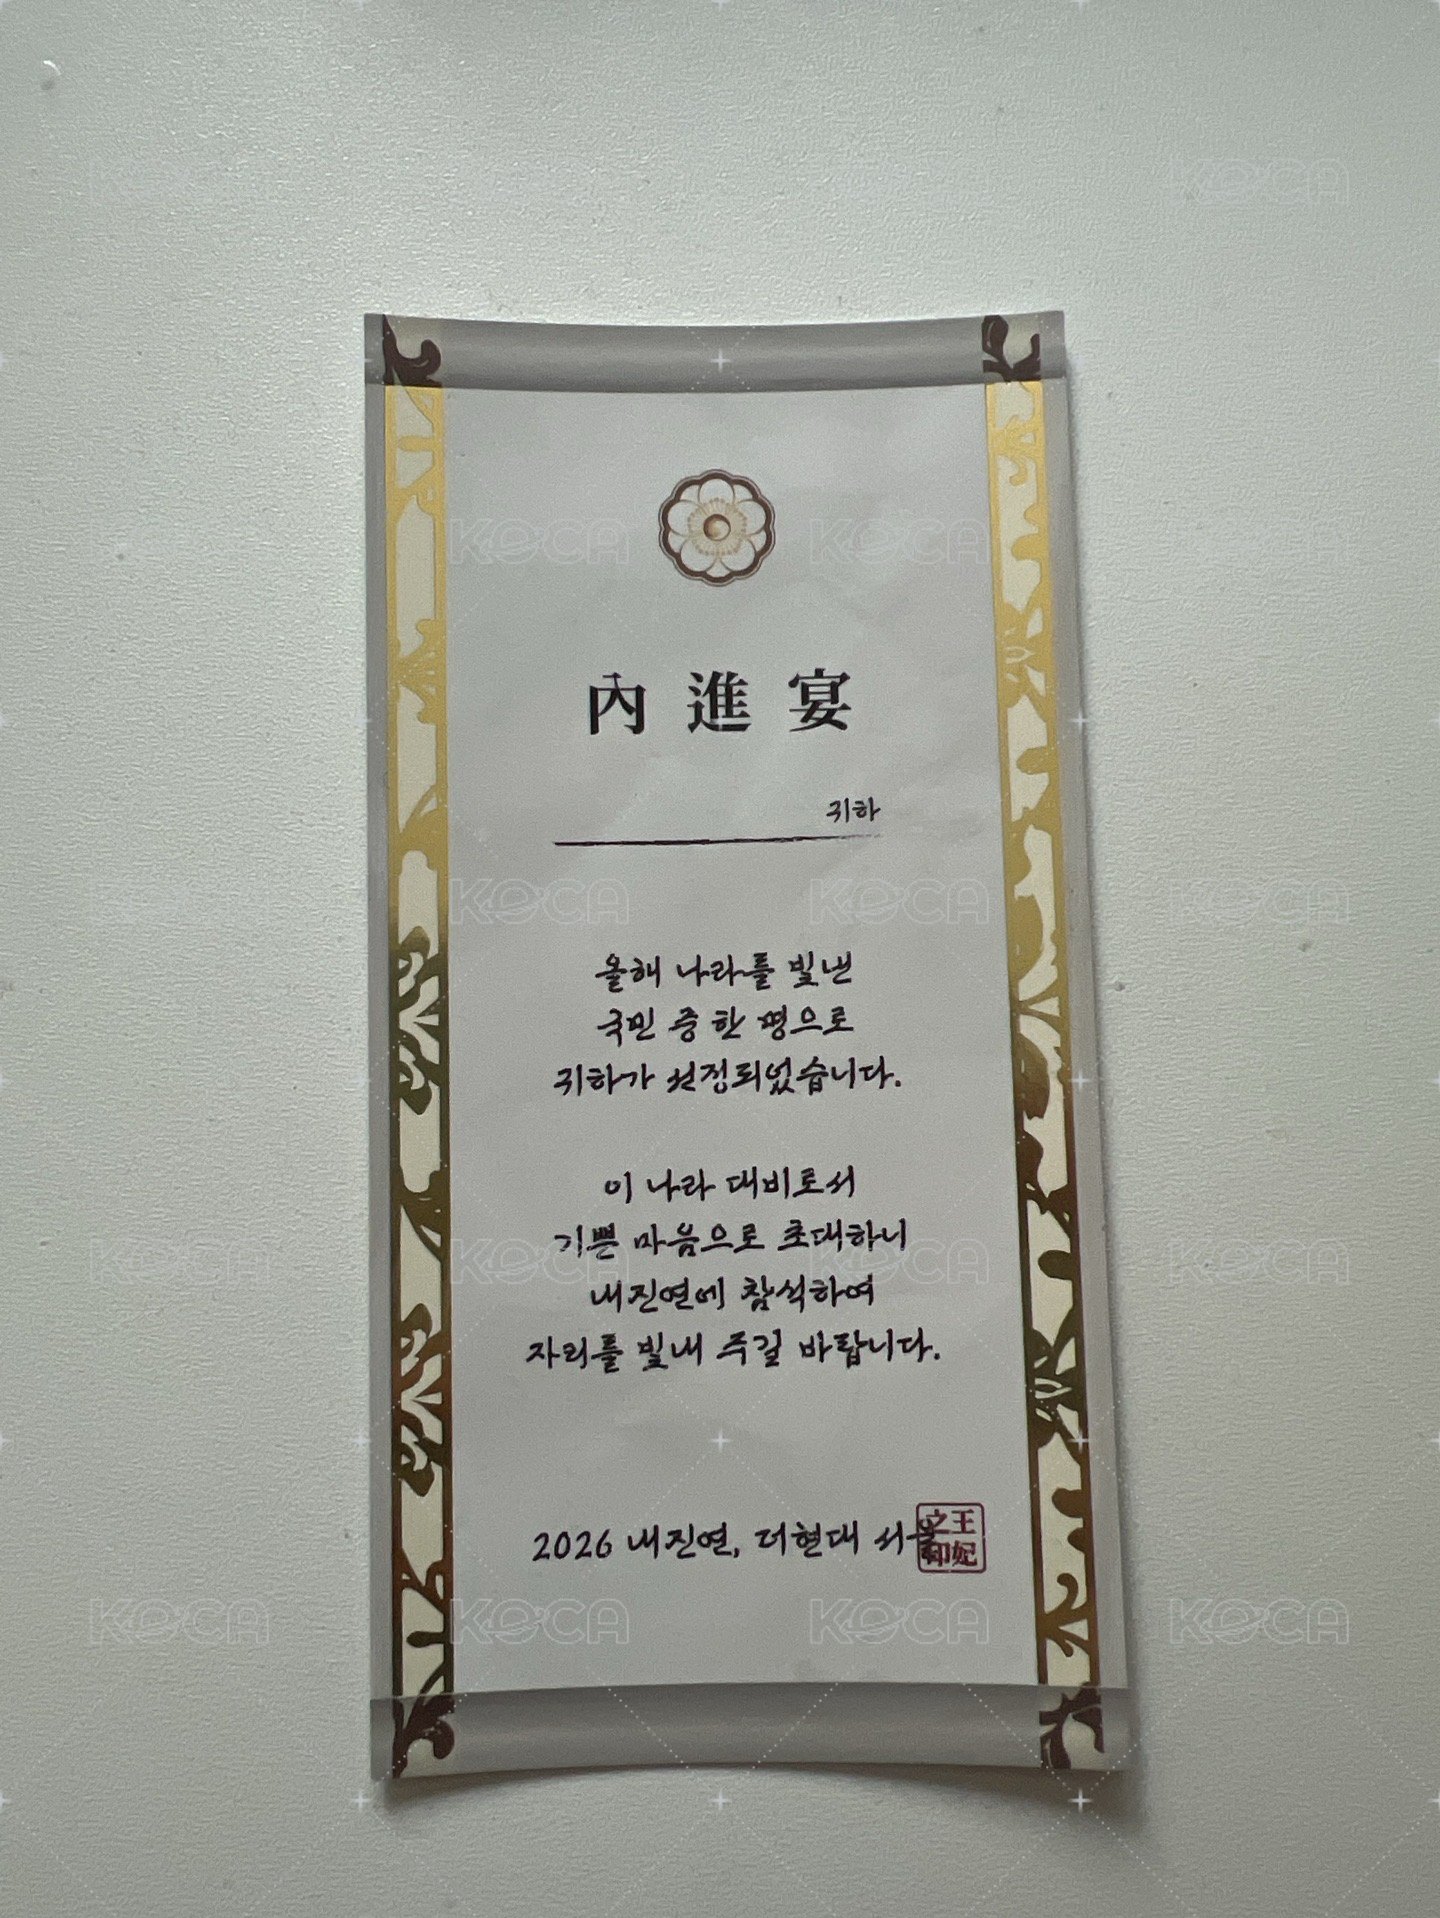 內進宴
귀하
올해 나라를 빛낸
국민 중 한 명으로
귀하가 선정되었습니다.
이 나라 대비로서
기쁜 마음으로 초대하니
내진연에 참석하여
자리를 빛내 주길 바랍니다.
2026 내진연, 더현대 서울
王妃之印
KeCA